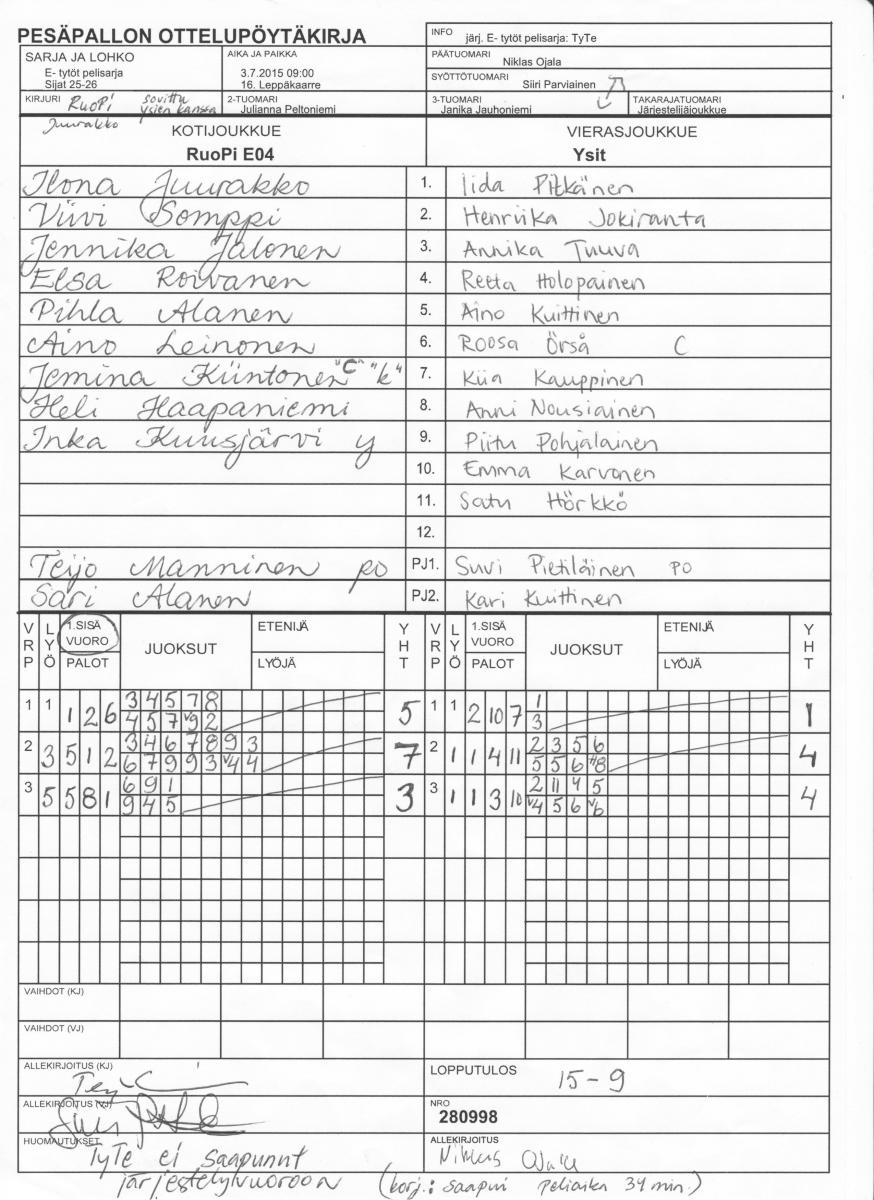 PESÄPALLON OTTELUPÖYTÄKIRJA
INFO järj. E- tytöt pelisarja: TyTe
SARJA JA LOHKO
E- tytöt pelisarja
Sijat 25-26
AIKA JA PAIKKA
3.7.2015 09:00
16. Leppäkaarre
PÄÄTUOMARI Niklas Ojala
SYÖTTÖTUOMARI Siiri Parviainen
KIRJURI RuoPi sovittu ysien kanssa
Juurakko
2-TUOMARI
Julianna Peltoniemi
3-TUOMARI
Janika Jauhoniemi
TAKARAJATUOMARI
Järjestelijäjoukkue
KOTIJOUKKUE VIERASJOUKKUE
RuoPi E04 Ysit
Ilona Juurakko 1. Iida Pitkänen
Viivi Somppi 2. Henriika Jokiranta
Jennika Jalonen 3. Annika Tuuva
Elsa Roivanen 4. Reeta Holopainen
Pihla Alanen 5. Aino Kuittinen
Aino Leinonen 6. Roosa Örså C
Jemina Kiintonen "C" "k" 7. Kiia Kauppinen
Heli Haapaniemi 8. Anni Nousiainen
Inka Kuusjärvi y 9. Piitu Pohjalainen
10. Emma Karvonen
11. Satu Hörkkö
12.
Teijo Manninen po PJ1. Suvi Pietiläinen po
Sari Alanen PJ2. Kari Kuittinen
VRP LYÖ 1.SISÄ VUORO PALOT JUOKSUT ETENIJÄ LYÖJÄ YHT VRP LYÖ 1.SISÄ VUORO PALOT JUOKSUT ETENIJÄ LYÖJÄ YHT
1 1 1 2 6 3 4 5 7 8 5 1 1 2 10 7 1 1
4 5 7 v9 2 3
2 3 5 1 2 3 4 6 7 8 9 3 7 2 1 1 4 11 2 3 5 6 4
6 7 9 9 3 v4 4 5 5 6 #8
3 5 5 8 1 6 9 1 3 3 1 1 3 10 2 11 4 5 4
9 4 5 v4 5 6 v6
VAIHDOT (KJ)
VAIHDOT (VJ)
ALLEKIRJOITUS (KJ)
LOPPUTULOS 15-9
ALLEKIRJOITUS (VJ)
NRO
280998
HUOMAUTUKSET
ALLEKIRJOITUS
Niklas Ojala
TyTe ei saapunut
järjestelyvuoroon (korj.: saapui peliaika 34 min.)